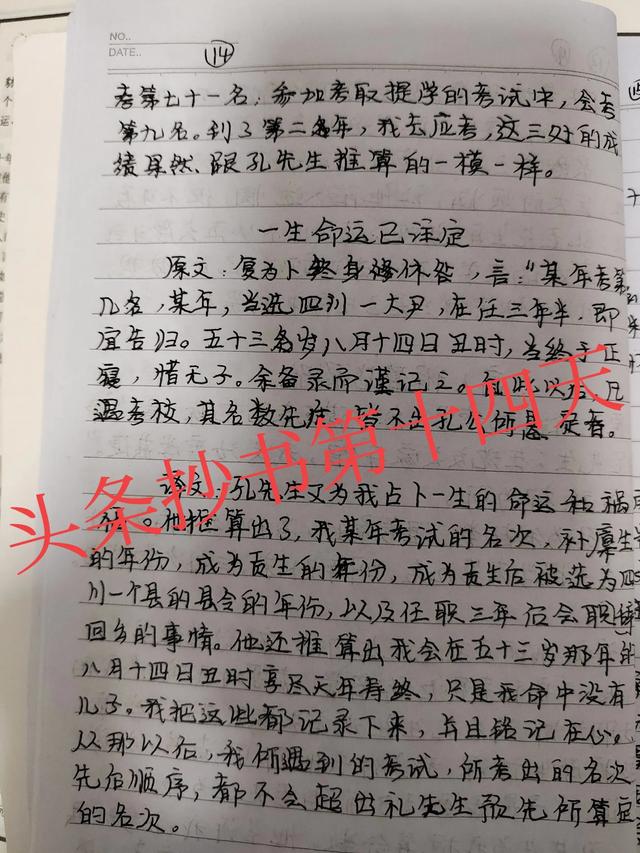 NO..
DATE..
14
考第七十一名;参加考取提学的考试中,会考
第九名。到了第二年,我去应考,这三处的成
绩果然跟孔先生推算的一模一样。
一生命运已注定
原文:复为卜终身休咎,言:"某年考第
几名,某年,当选四川一大尹,在任三年半,即
宜告归。五十三岁八月十四日丑时,当终于正
寝,惜无子。余备录而谨记之。自此以后,凡
遇考校,其名数先后,皆不出孔公所悬定者。
译文:孔先生又为我占卜一生的命运和祸
。他推算出了,我某年考试的名次,补廪生
的年份,成为贡生的年份,成为贡生后被选为四
川一个县的县令的年份,以及任职三年后会辞
回乡的事情。他还推算出我会在五十三岁那年的
八月十四日丑时享尽天年寿终,只是我命中没有
儿子。我把这些都记录下来,并且铭记在心。
从那以后,我所遇到的考试,所考出的名次
先后顺序,都不会超出礼先生预先所算定
的名次。
头条抄书第十四天